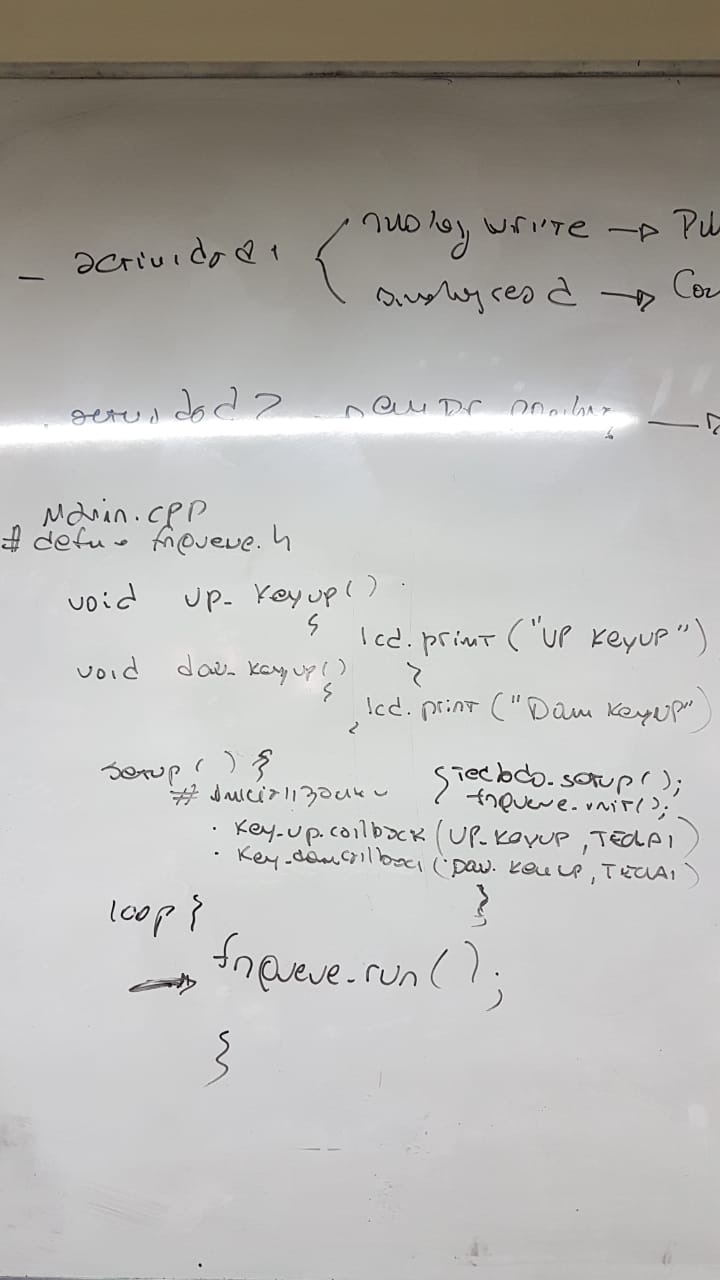 - actividad 1 { analog write → Pu
analog read → Con
actividad 2 →
Main.cpp
# define fnqueue.h
void up_keyup()
{ lcd.print ("UP KEYUP")
void dow_keyup() }
{ lcd.print ("Dow KEYUP")
setup() { { Teclado.setup();
# Inicializar fnqueue.init();
· Key_up.callback (UP_KEYUP, TECLA1)
· Key_down callback (Dow_KEYUP, TECLA1)
loop } }
→ fnqueue.run();
}